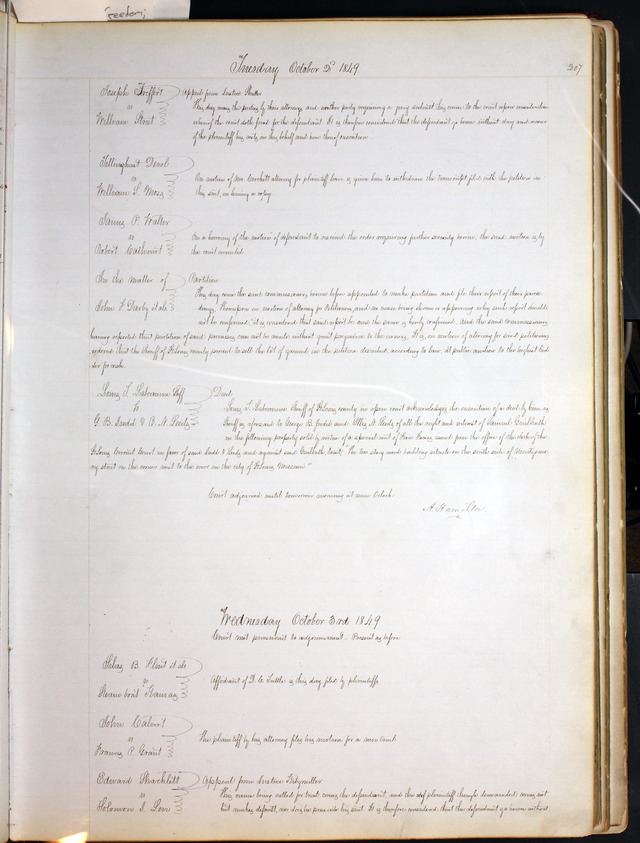 Freedom;
Tuesday October 2d 1849
207
Joseph Appeal from Justice Butler
vs This day came the parties by their attorneys and neither party requiring a jury submit this cause to the court upon consideration
William Stout whereof the court doth find for the defendant. It is therefore considered that the defendant go hence without day and recover
of the plaintiff his costs in this behalf and have thereof execution
Tillinghast
vs On motion of Mr attorney for plaintiff leave is given him to withdraw the transcript filed with the petition in
William S. Moss this suit, on leaving a copy
James P. Walter
vs On a hearing of the motion of defendant to rescind the order requiring further security herein, the said motion is by
Robert Cathcart the court overruled
In the matter of Partition
John F. Darby et als This day come the said commissioners herein before appointed to make partition and file their report of their procee
dings, Whereupon on motion of attorney for Petitioners, and no cause being shown or appearing why such report should
not be confirmed it is considered that said report be and the same is hereby confirmed. And the said commissioners
having reported that partition of said premises can not be made without great prejudice to the owners, It is, on motion of attorney for said petitioners
ordered that the Sheriff of St Louis county proceed to sell the lot of ground in the petition described, according to law, at public auction to the highest bid
der for cash
Louis T. Labeaume Shff Deed
to Louis T. Labeaume Sheriff of St Louis county in open court acknowledges the execution of a deed by him as
G. B. & A. N. Leeds Sheriff as aforesaid to George B. and N. Leeds of all the right and interest of Samuel
in the following property sold by virtue of a special writ of Fieri Facias issued from the office of the clerk of the
St Louis Circuit Court in favor of said & Leeds and against said towit; "The two story building situate on the south side of
street on the corner next to the river in the city of St Louis Missouri"
Court adjourned until tomorrow morning at nine Oclock
A. Hamilton
Wednesday October 3rd 1849
Court met pursuant to adjournment. Present as before
Silas B. Flint et als
vs Affidavit of D. C. Tuttle is this day filed by plaintiffs
Steam boat Kansas
John Calvert
vs The plaintiff by his attorney files his motion for a new trial
Francis P. Grant
Edward Appeal from Justice
vs This cause being called for trial comes the defendant, and the sd plaintiff though demanded comes not
Solomon J. Levi but makes default, nor does he prosecute his suit. It is therefore considered that the defendant go hence without